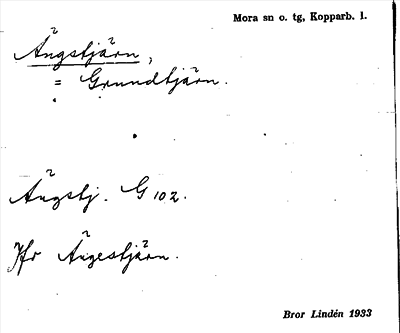 Mora sn o. tg, Kopparb. l.
Ängstjärn,
= Grundtjärn.
Ängstj. G 102.
Jfr Ängestjärn.
Bror Lindén 1933